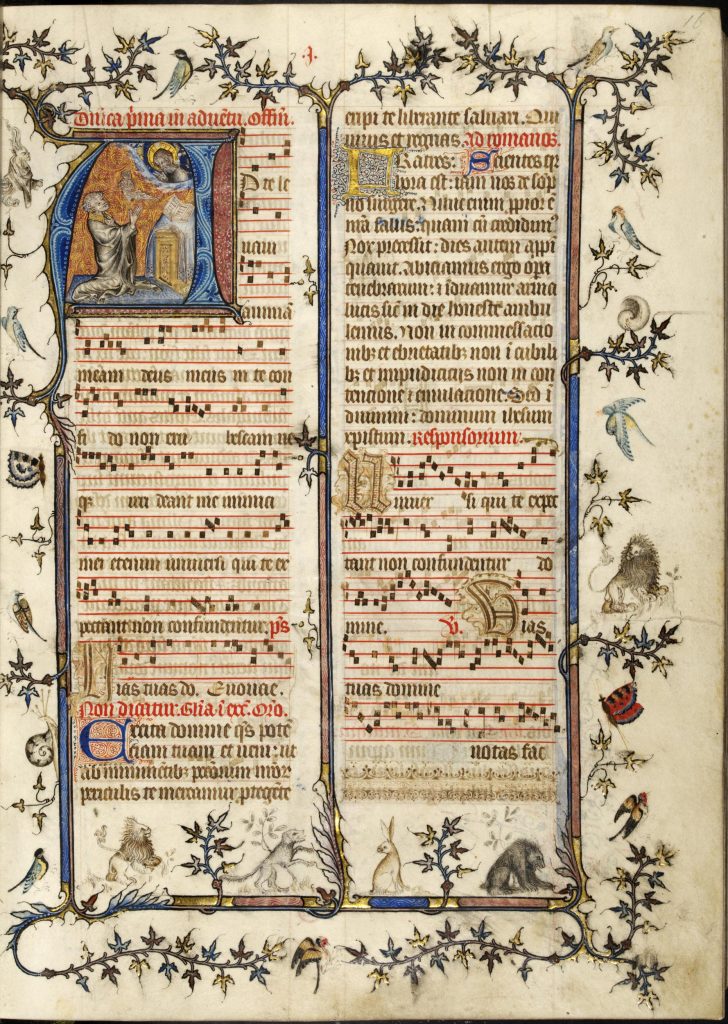 16
Dnīca p̄ma in aduētu. Offm̄.
D te le
uaui
animā
meam deus meus in te con
fi do non eru bescam ne
qꝫ irri deant me inimici
mei etenim uniuersi qui te ex
pectant non confundentur. p̄s
Uias tuas do. Euouae.
Non dicitur. Gl̄ia ī exc̄. Oro.
Excita domine q̄s potē
ciam tuam et ueni: ut
ab imminētibꝫ pc̄c̄orum nr̄or̄
periculis te mereamur ꝓtegēte
eripi te liberante saluari. Qui
uiuis et regnas. Ad romanos.
Fratres: Scientes qr̄
hora est: iam nos de sop
no surgere. Nunc enim ꝓpior ē
nr̄a salus: quam cū credidim᷒
Nox precessit: dies autem appī
quauit. Abiciamus ergo opa
tenebrarum: ⁊ induamur arma
lucis sic̄ in die honeste ambu
lemus. Non in commessatio
nibꝫ et ebrietatibꝫ non ī cubili
bꝫ et impudiciciis non in con
tencione ⁊ emulacione. Sed ī
duimini: dominum ihesum
xpistum. Responsorium.
Uniuer si qui te expec
tant non confundentur do
mine. V. Uias
tuas domine
notas fac